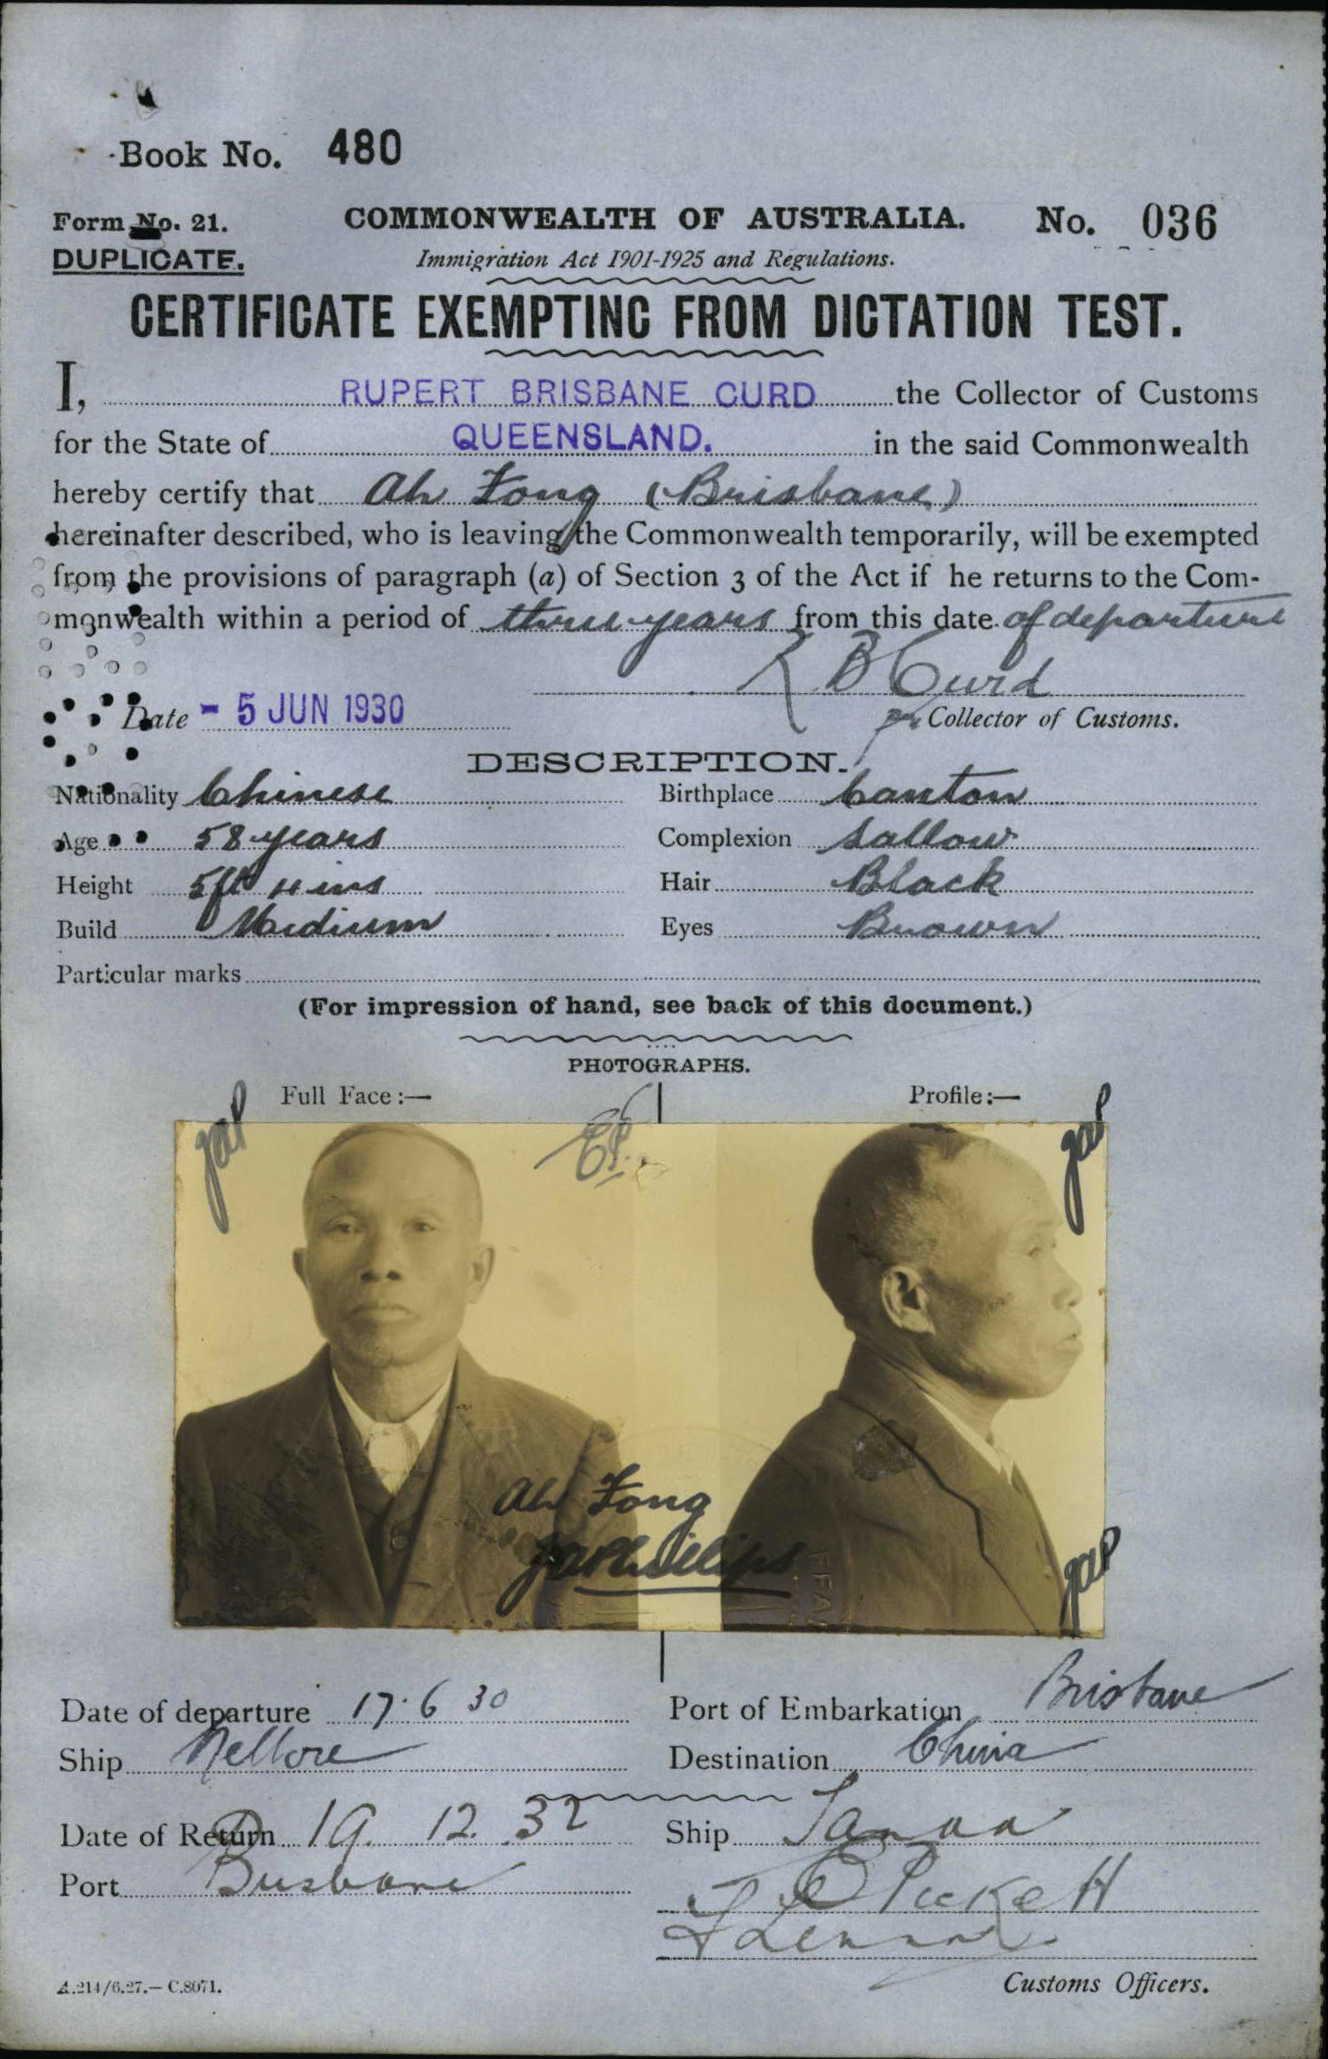 Book No. 480
Form No. 21. COMMONWEALTH OF AUSTRALIA. No. 036
DUPLICATE. Immigration Act 1901-1925 and Regulations.
CERTIFICATE EXEMPTING FROM DICTATION TEST.
I, RUPERT BRISBANE CURD the Collector of Customs
for the State of QUEENSLAND. in the said Commonwealth
hereby certify that Ah Fong (Brisbane)
hereinafter described, who is leaving the Commonwealth temporarily, will be exempted
from the provisions of paragraph (a) of Section 3 of the Act if he returns to the Com-
monwealth within a period of three years from this date of departure
R B Curd
Date - 5 JUN 1930 Collector of Customs.
DESCRIPTION.
Nationality Chinese Birthplace Canton
Age 58 years Complexion Sallow
Height 5ft 4 ins Hair Black
Build Medium Eyes Brown
Particular marks
(For impression of hand, see back of this document.)
PHOTOGRAPHS.
Full Face:— Profile:—
Ah Fong
Date of departure 17.6 30 Port of Embarkation Brisbane
Ship Nellore Destination China
Date of Return 19. 12. 32 Ship
Port Brisbane
Pickett
Customs Officers.
A.214/6.27.—C.8071.